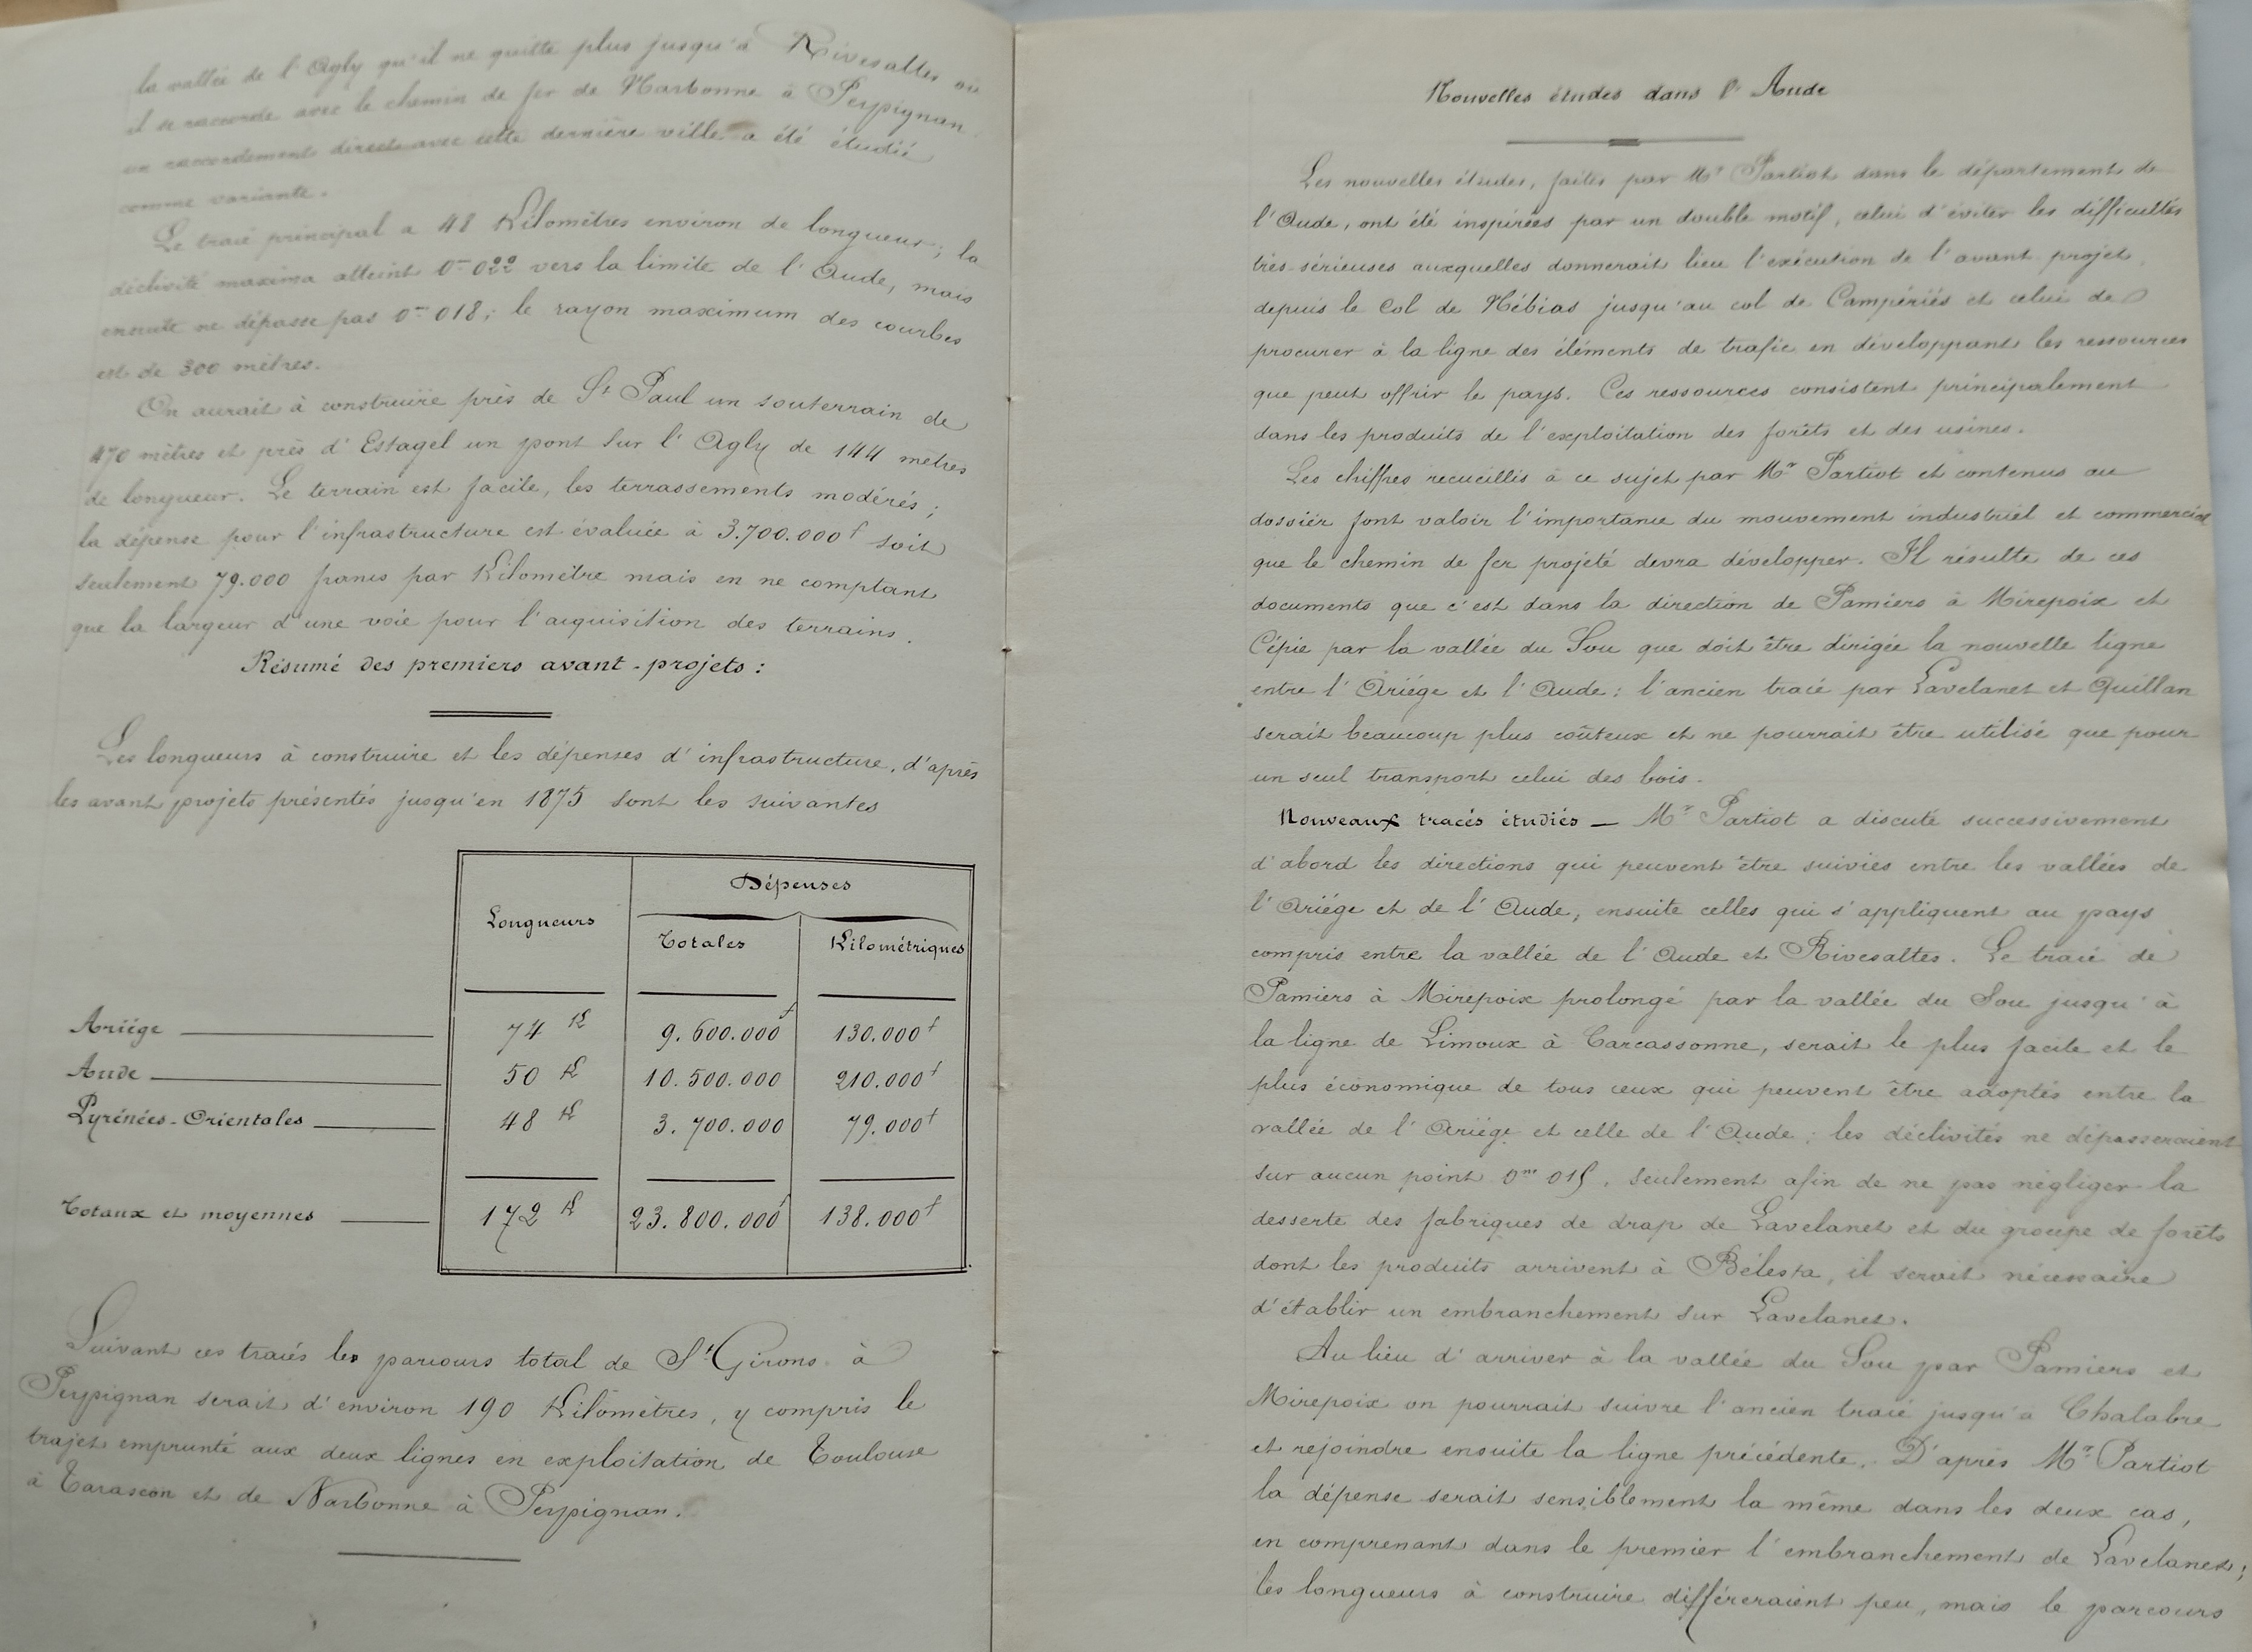 la vallée de l'Agly qu'il ne quitte plus jusqu'à Rivesaltes où
il se raccorde avec le chemin de fer de Narbonne à Perpignan
un raccordement direct avec cette dernière ville a été étudié
comme variante.
Le tracé principal a 48 Kilomètres environ de longueur; la
déclivité maxima atteint 0m022 vers la limite de l'Aude, mais
ensuite ne dépasse pas 0m018; le rayon maximum des courbes
est de 300 mètres.
On aurait à construire près de St Paul un souterrain de
470 mètres et près d'Estagel un pont sur l'Agly de 144 mètres
de longueur. Le terrain est facile, les terrassements modérés;
la dépense pour l'infrastructure est évaluée à 3.700.000f soit
seulement 79.000 francs par Kilomètre mais en ne comptant
que la largeur d'une voie pour l'acquisition des terrains.
Résumé des premiers avant-projets:
Les longueurs à construire et les dépenses d'infrastructure, d'après
les avant projets présentés jusqu'en 1875 sont les suivantes
Dépenses
Longueurs Totales Kilométriques
Ariége 74 K 9.600.000f 130.000f
Aude 50 K 10.500.000 210.000f
Pyrénées-Orientales 48 K 3.700.000 79.000f
Totaux et moyennes 172 K 23.800.000f 138.000f
Suivant ces tracés les parcours total de St Girons à
Perpignan serait d'environ 190 Kilomètres, y compris le
trajet emprunté aux deux lignes en exploitation de Toulouse
à Tarascon et de Narbonne à Perpignan.
Nouvelles études dans l'Aude
Les nouvelles études, faites par Mr Partiot dans le département de
l'Aude, ont été inspirées par un double motif, celui d'éviter les difficultés
très-sérieuses auxquelles donnerait lieu l'exécution de l'avant projet
depuis le Col de Nébias jusqu'au col de Campériès et celui de
procurer à la ligne des éléments de trafic en développant les ressources
que peut offrir le pays. Ces ressources consistent principalement
dans les produits de l'exploitation des forêts et des usines.
Les chiffres recueillis à ce sujet par Mr Partiot et contenus au
dossier font valoir l'importance du mouvement industriel et commercial
que le chemin de fer projeté devra développer. Il résulte de ces
documents que c'est dans la direction de Pamiers à Mirepoix et
Cépie par la vallée du Sou que doit être dirigée la nouvelle ligne
entre l'Ariége et l'Aude: l'ancien tracé par Lavelanet et Quillan
serait beaucoup plus coûteux et ne pourrait être utilisé que pour
un seul transport celui des bois.
Nouveaux tracés étudiés — Mr Partiot a discuté successivement
d'abord les directions qui peuvent être suivies entre les vallées de
l'Ariége et de l'Aude, ensuite celles qui s'appliquent au pays
compris entre la vallée de l'Aude et Rivesaltes. Le tracé de
Pamiers à Mirepoix prolongé par la vallée du Sou jusqu'à
la ligne de Limoux à Carcassonne, serait le plus facile et le
plus économique de tous ceux qui peuvent être adoptés entre la
vallée de l'Ariége et celle de l'Aude; les déclivités ne dépasseraient
sur aucun point 0m 015, seulement afin de ne pas négliger la
desserte des fabriques de drap de Lavelanet et du groupe de forêts
dont les produits arrivent à Bélesta, il serait nécessaire
d'établir un embranchement sur Lavelanet.
Au lieu d'arriver à la vallée du Sou par Pamiers et
Mirepoix on pourrait suivre l'ancien tracé jusqu'à Chalabre
et rejoindre ensuite la ligne précédente. D'après Mr Partiot
la dépense serait sensiblement la même dans les deux cas,
en comprenant dans le premier l'embranchement de Lavelanet;
les longueurs à construire différeraient peu, mais le parcours